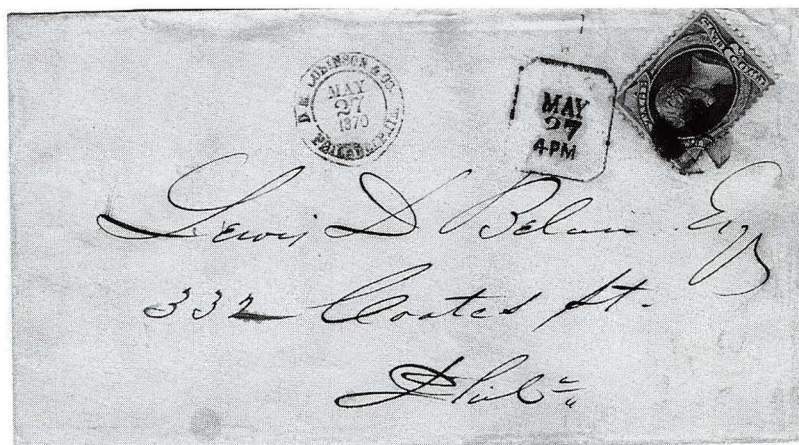 MAY
27
1870
PHILADELPHIA
MAY
27
4 PM
Lewis D Belair Esq
332 Coates St.
Phila